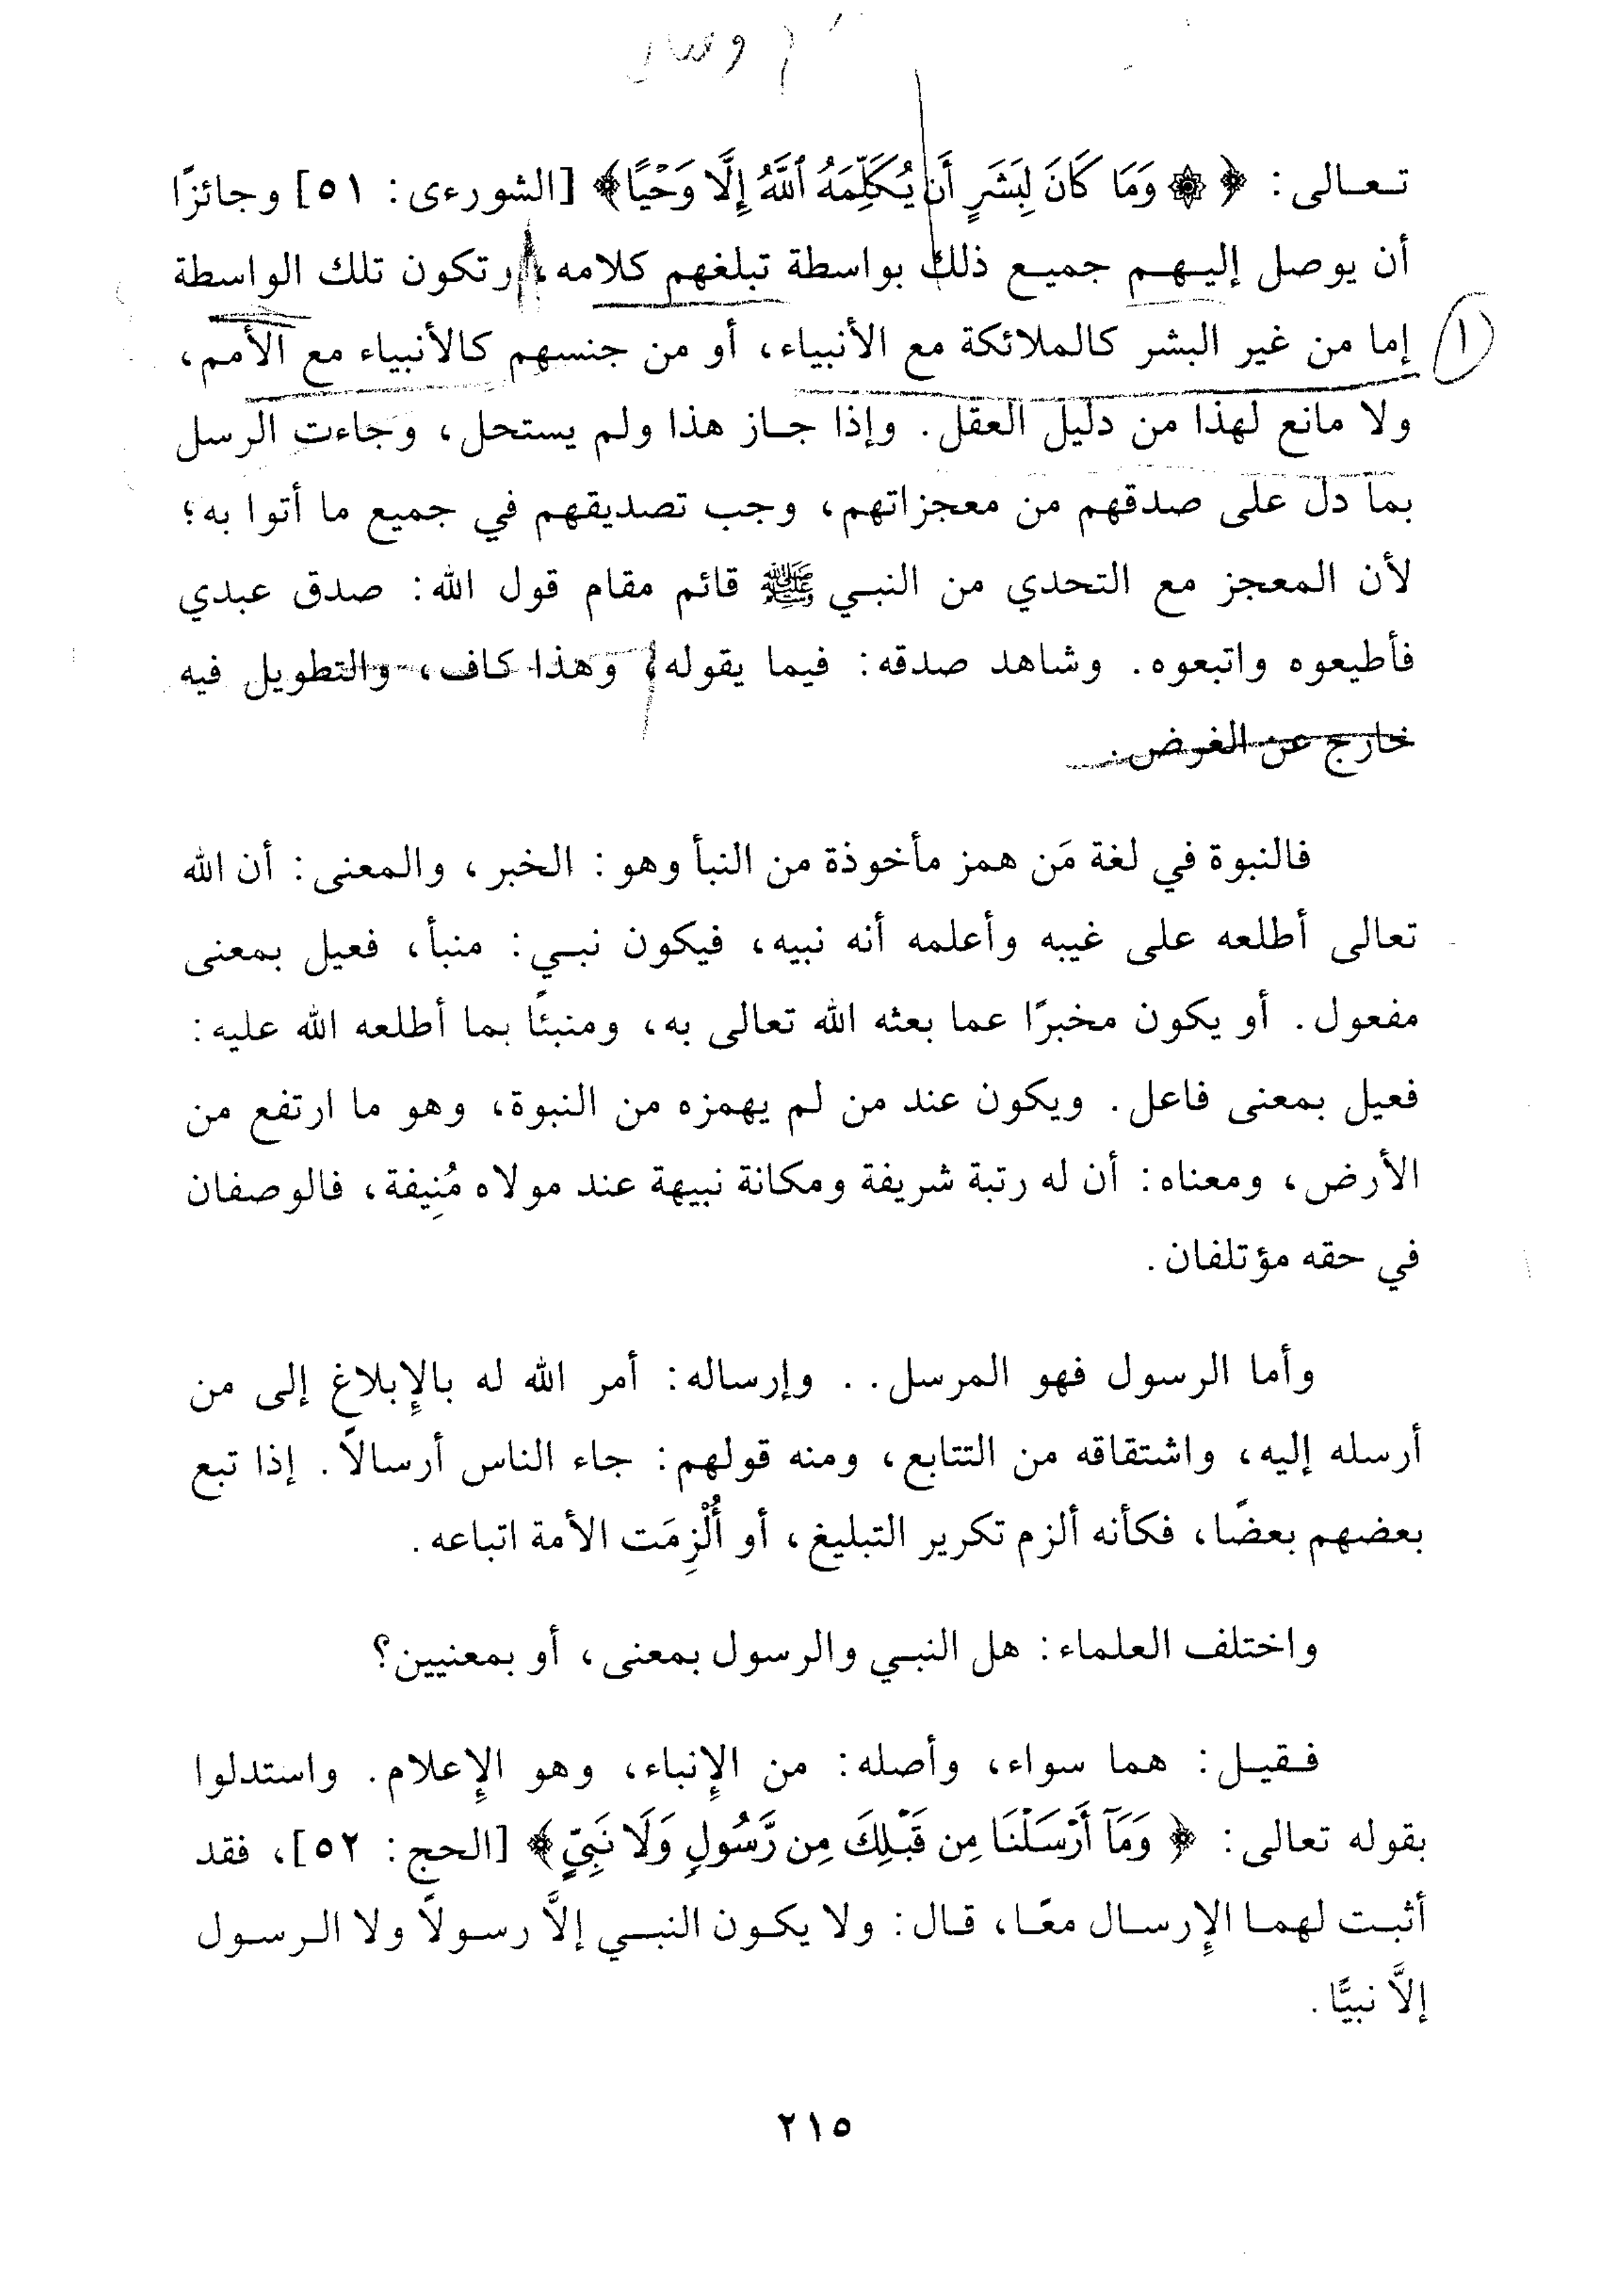 تعالى: ﴿ ۞ وَمَا كَانَ لِبَشَرٍ أَن يُكَلِّمَهُ ٱللَّهُ إِلَّا وَحْيًا﴾ [الشورءى: ٥١] وجائزًا
أن يوصل إليهم جميع ذلك بواسطة تبلغهم كلامه، وتكون تلك الواسطة
إما من غير البشر كالملائكة مع الأنبياء، أو من جنسهم كالأنبياء مع الأمم،
١
ولا مانع لهذا من دليل العقل. وإذا جاز هذا ولم يستحل، وجاءت الرسل
بما دل على صدقهم من معجزاتهم، وجب تصديقهم في جميع ما أتوا به؛
لأن المعجز مع التحدي من النبي ﷺ قائم مقام قول الله: صدق عبدي
فأطيعوه واتبعوه. وشاهد صدقه: فيما يقوله، وهذا كاف، والتطويل فيه
خارج عن الغرض.
فالنبوة في لغة مَن همز مأخوذة من النبأ وهو: الخبر، والمعنى: أن الله
تعالى أطلعه على غيبه وأعلمه أنه نبيه، فيكون نبي: منبأ، فعيل بمعنى
مفعول. أو يكون مخبرًا عما بعثه الله تعالى به، ومنبئًا بما أطلعه الله عليه:
فعيل بمعنى فاعل. ويكون عند من لم يهمزه من النبوة، وهو ما ارتفع من
الأرض، ومعناه: أن له رتبة شريفة ومكانة نبيهة عند مولاه مُنِيفة، فالوصفان
في حقه مؤتلفان.
وأما الرسول فهو المرسل.. وإرساله: أمر الله له بالإِبلاغ إلى من
أرسله إليه، واشتقاقه من التتابع، ومنه قولهم: جاء الناس أرسالاً. إذا تبع
بعضهم بعضًا، فكأنه ألزم تكرير التبليغ، أو أُلْزِمَت الأمة اتباعه.
واختلف العلماء: هل النبي والرسول بمعنى، أو بمعنيين؟
فقيل: هما سواء، وأصله: من الإِنباء، وهو الإِعلام. واستدلوا
بقوله تعالى: ﴿ وَمَآ أَرْسَلْنَا مِن قَبْلِكَ مِن رَّسُولٍ وَلَا نَبِيٍّ﴾ [الحج: ٥٢]، فقد
أثبت لهما الإِرسال معًا، قال: ولا يكون النبي إلاَّ رسولاً ولا الرسول
إلاَّ نبيًّا.
٢١٥